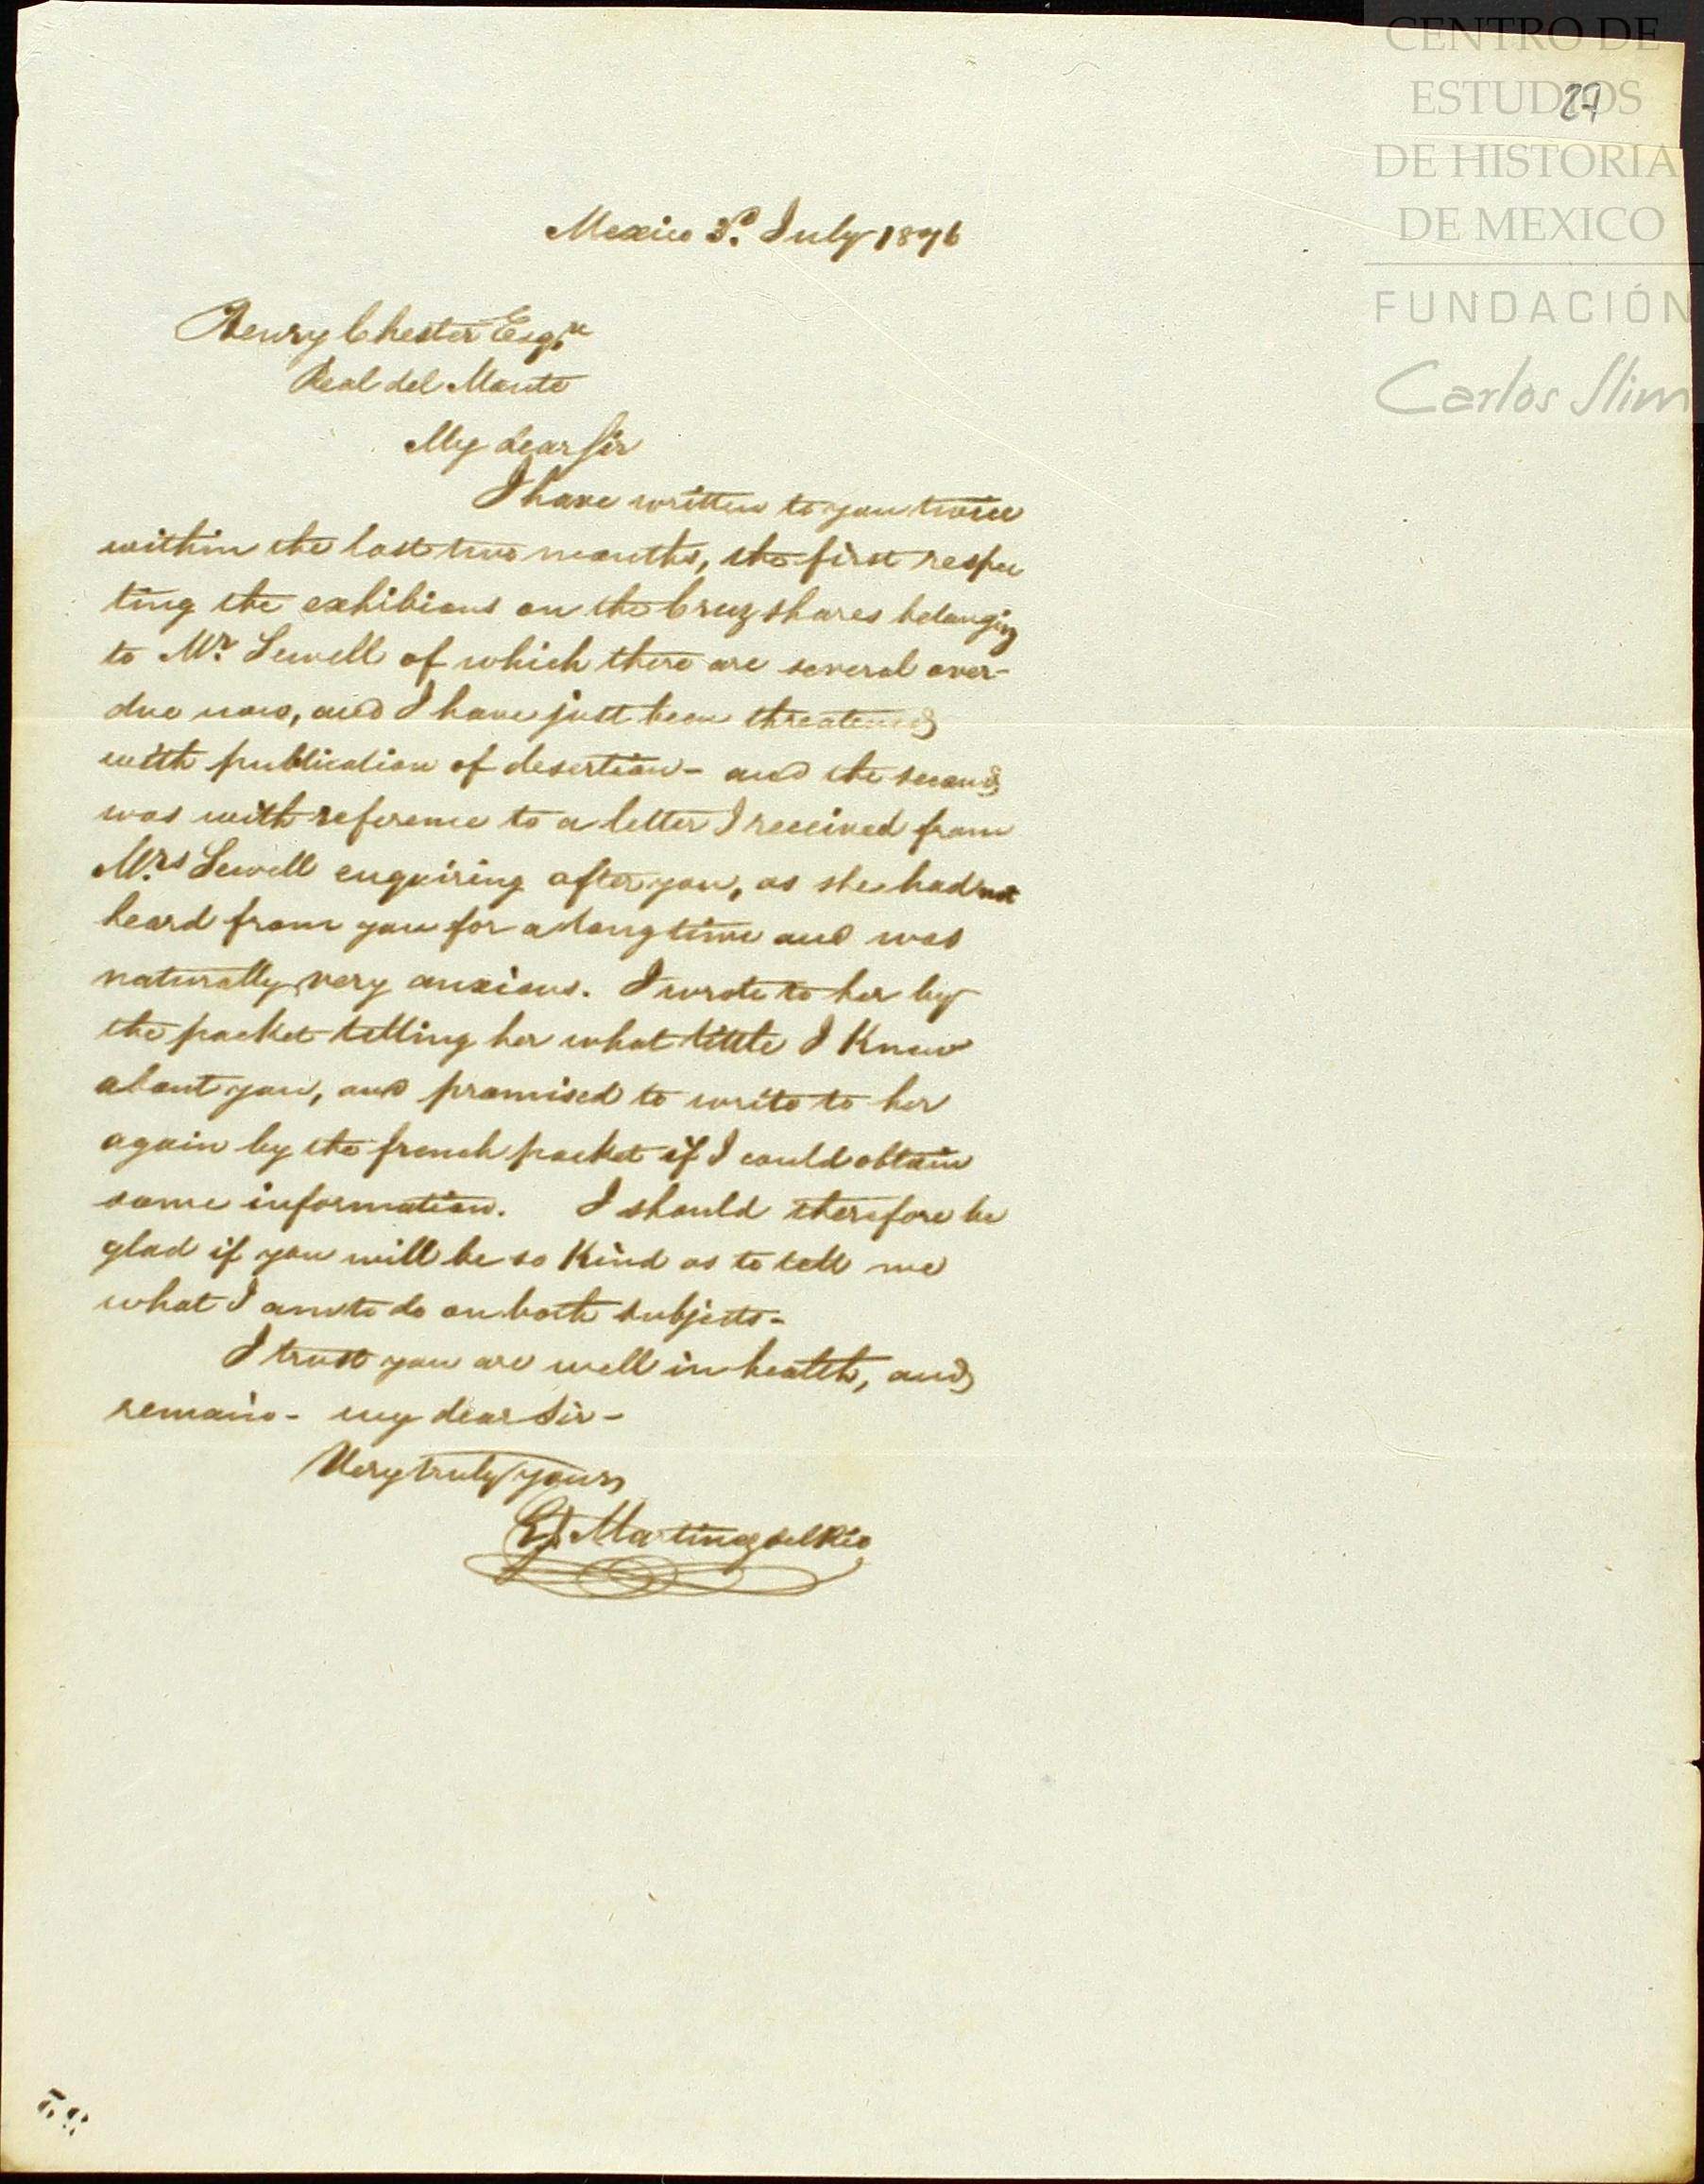 CENTRO DE
ESTUDIOS
DE HISTORIA
DE MEXICO
FUNDACIÓN
Carlos Slim
27
Mexico 3d. July 1876
Henry Chester Esqre
Real del Monte
My dear Sir
I have written to you twice
within the last two months, the first respec
ting the exhibions on the Cruz shares belonging
to Mr. Sewell of which there are several over-
due now, and I have just been threatened
with publication of desertion - and the second
was with reference to a letter I received from
Mrs. Sewell enquiring after you, as she had not
heard from you for a long time and was
naturally very anxious. I wrote to her by
the packet telling her what little I knew
about you, and promised to write to her
again by the french packet if I could obtain
some information. I should therefore be
glad if you will be so kind as to tell me
what I am to do on both subjects -
I trust you are well in health, and
remain - my dear Sir -
Very truly yours
Martinez del Rio